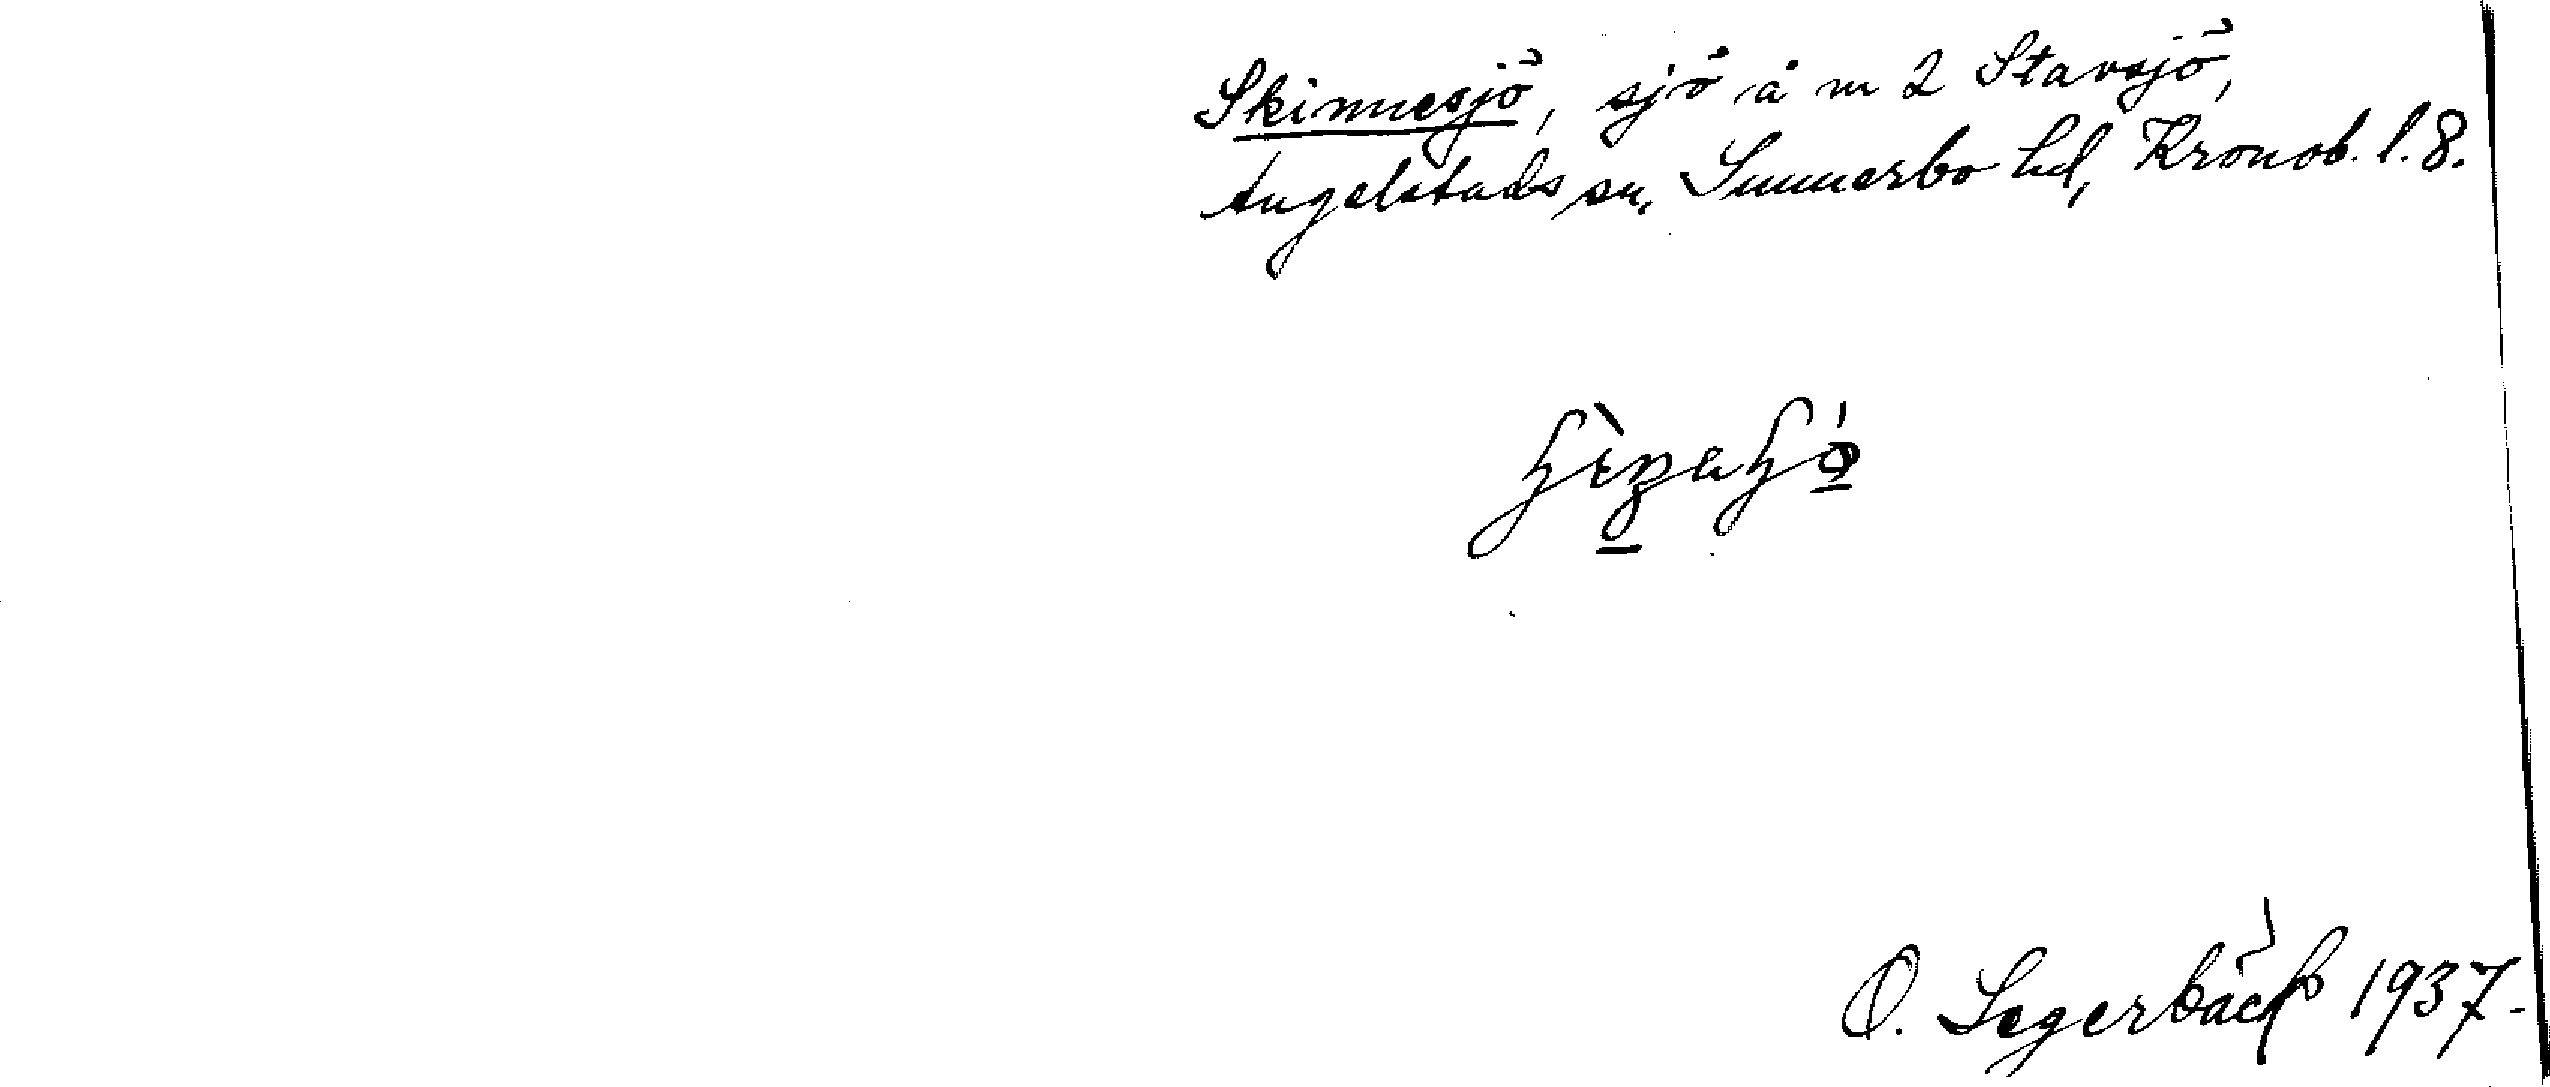 Skinnesjö, sjö å m 2 Stavsjö,
Angelstads sn, Sunnerbo hd, Kronob. l. 8.
O. Segerbäck 1937.